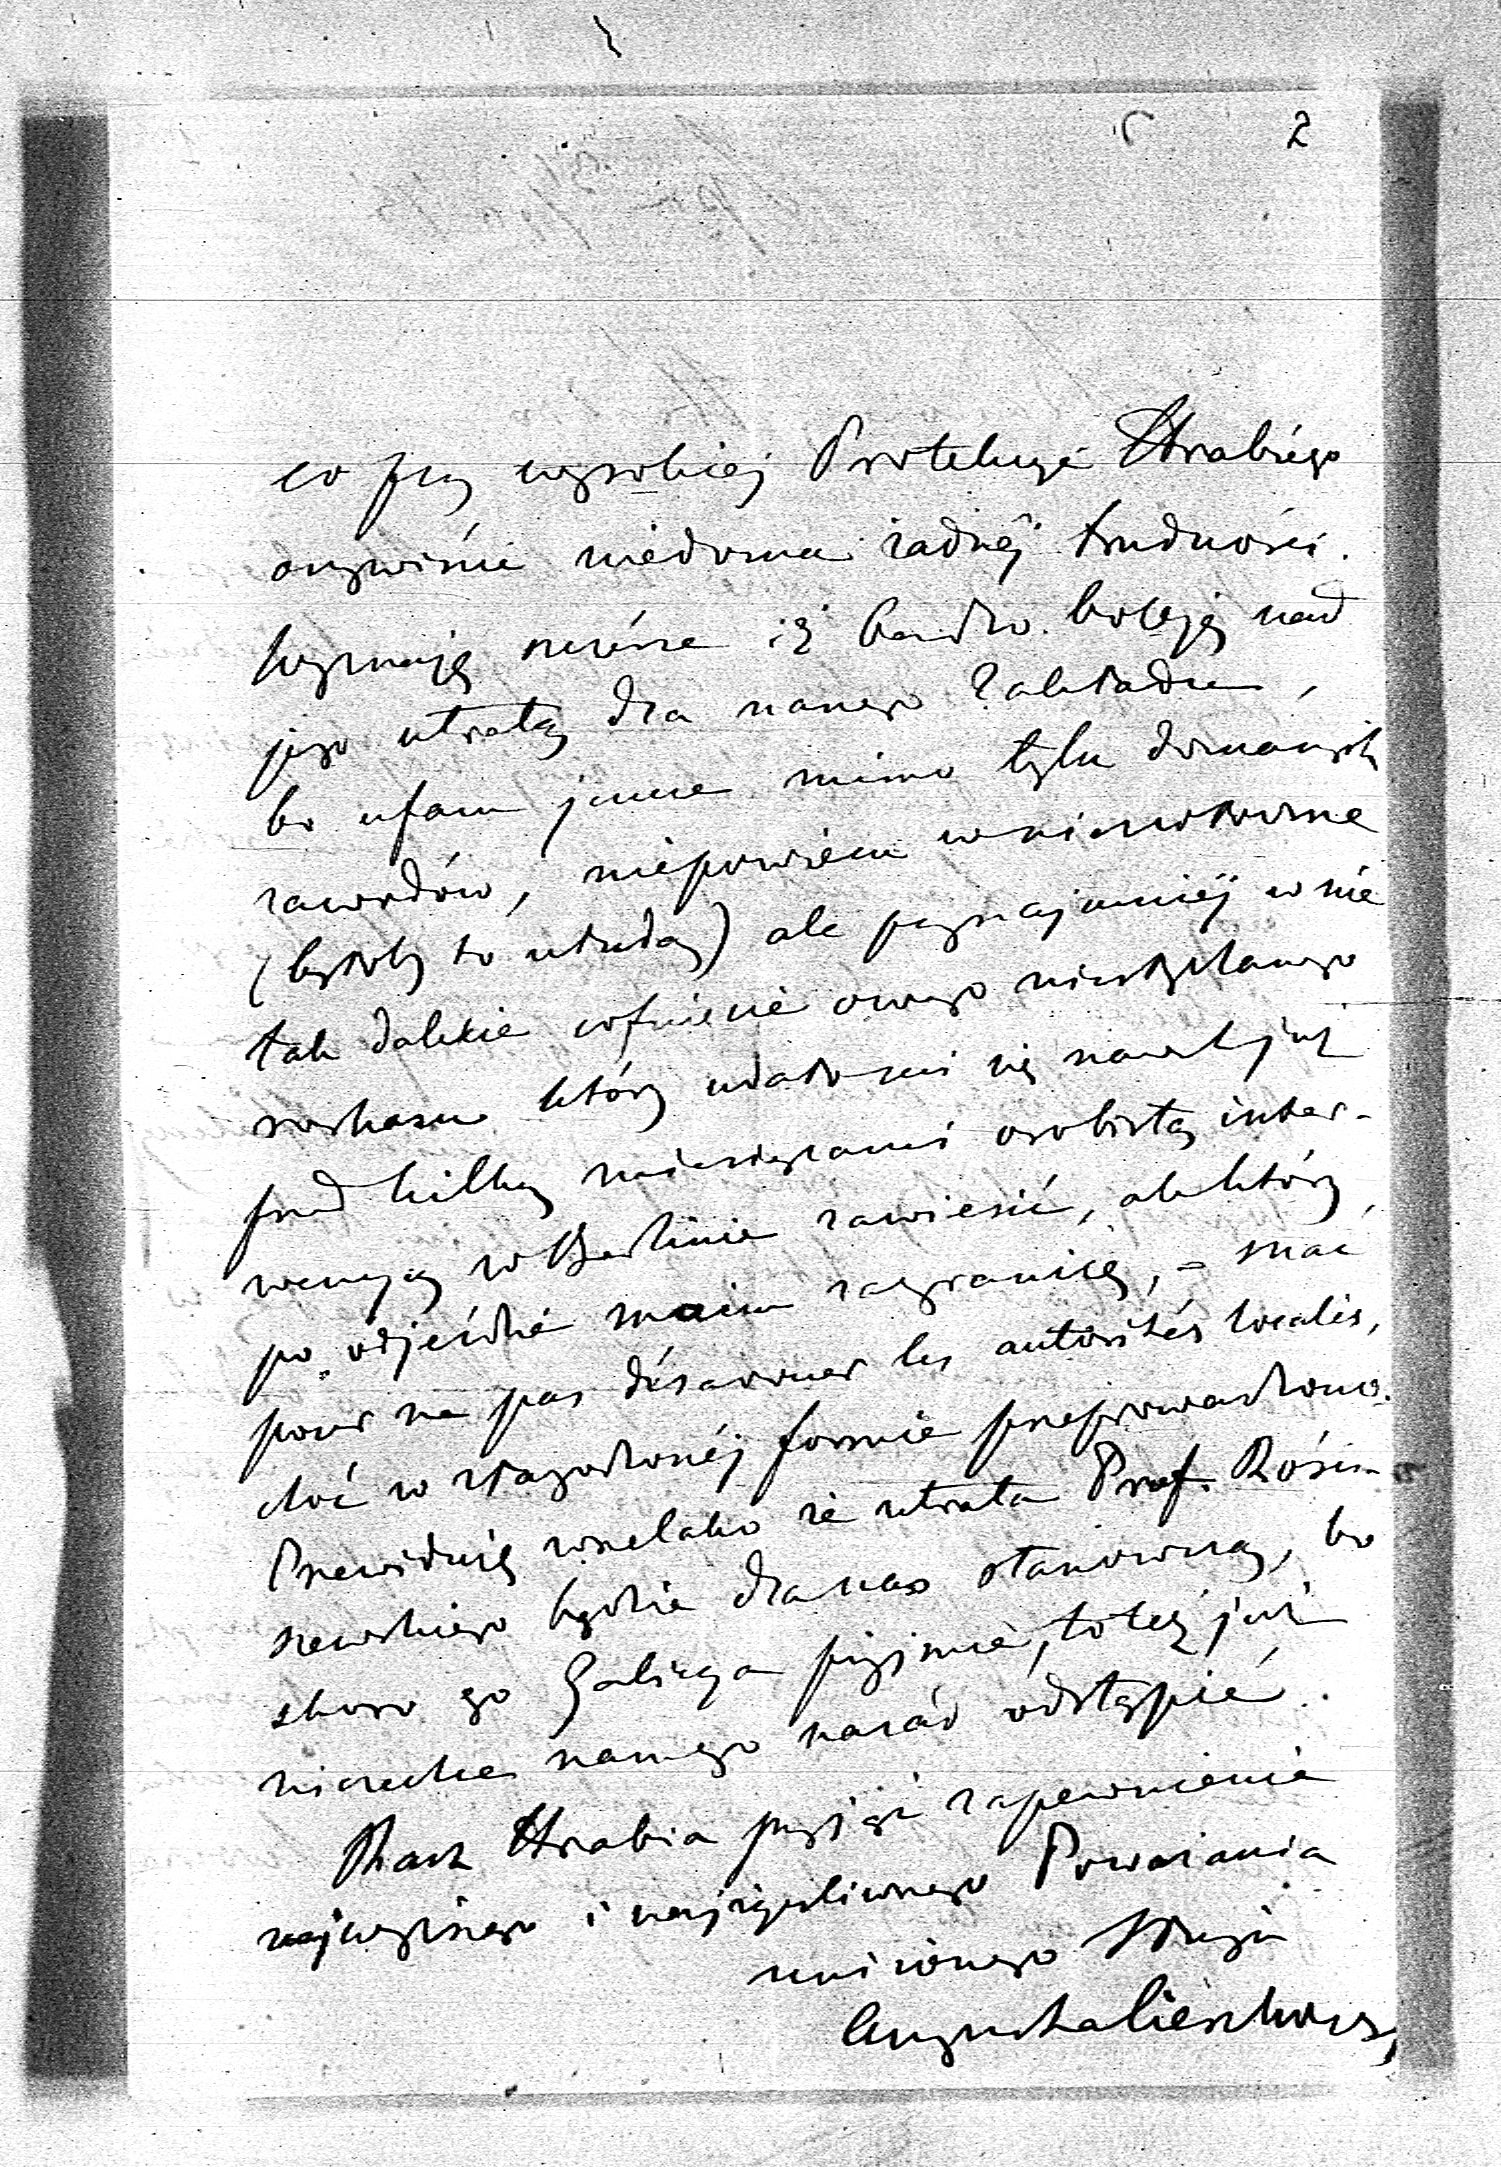 2
co przy wysokiej Protekcyi Hrabiego
oczywiście niedozna żadnéj trudności.
Wyznaję szczérze iż bardzo boleję nad
jego utratą dla naszego Zakładu,
bo ufam jeszcze mimo tylu doznanych
zawodów, niepowiem w niezwłoczne
(byłoby to ułudą) ale przynajmniéj w nie
tak dalekie cofnięcie owego nieszczęsnego
rozkazu który udało mi się nawet już
przed kilką miesiącami osobistą inter-
wencyą w Berlinie zawiesić, ale który,
po odjeździe moim zagranicę, – znać
pour ne pas désavouer les autorités locales,
choć w złagodzonéj formie przeprowadzono.
Przewiduję wszelako że utrata Prof. Rósza-
szewskiego będzie dla nas stanowczą, bo
skoro go Galicya przyjmie, to też już
niezechce nam go nazád odstąpić.
Racz Hrabia przyjąć zapewnienie
najwyższego i najżyczliwszego Poważania
uniżonego Sługi
Augusta Cieszkowskiego